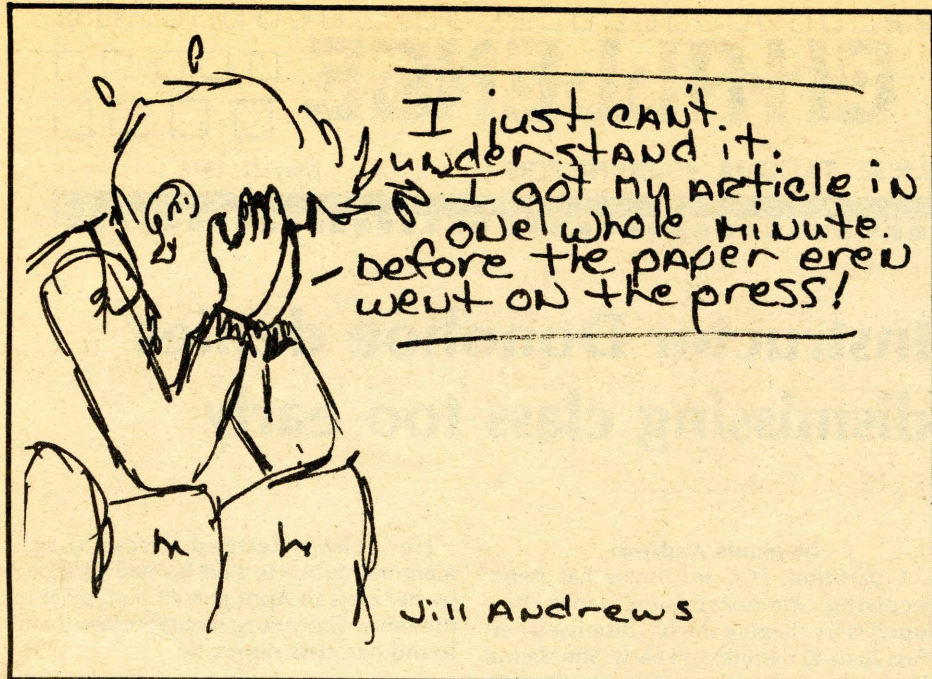 I just CAN't.
UNderstAND it.
I got my ARticle iN
ONE whole MiNute.
before the pApeR eveN
weNt oN the press!
Jill ANdrews